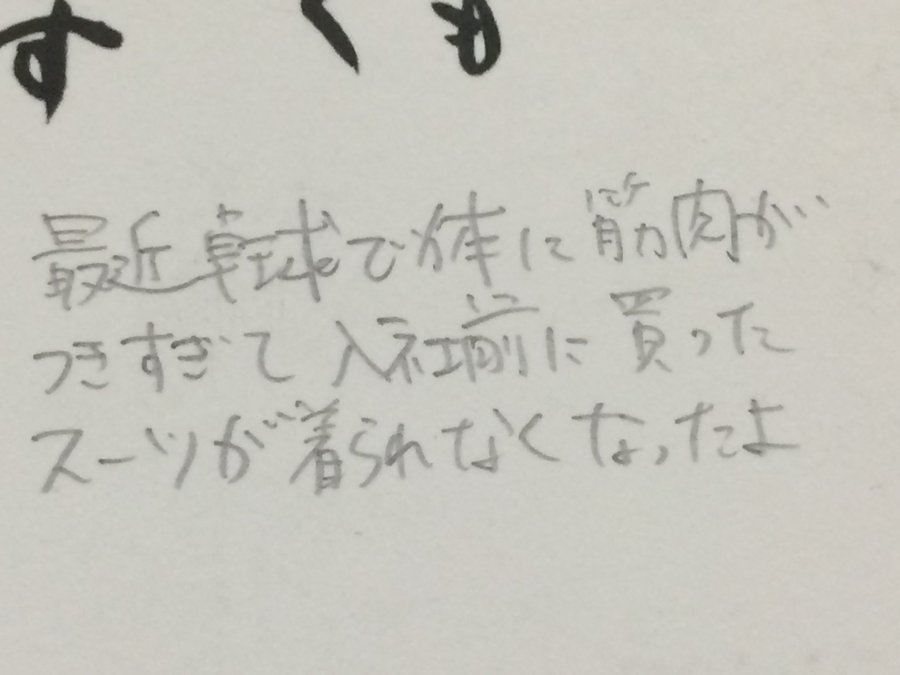 す くも
最近卓球で体に筋肉が
つきすぎて入社前に買った
スーツが着られなくなったよ